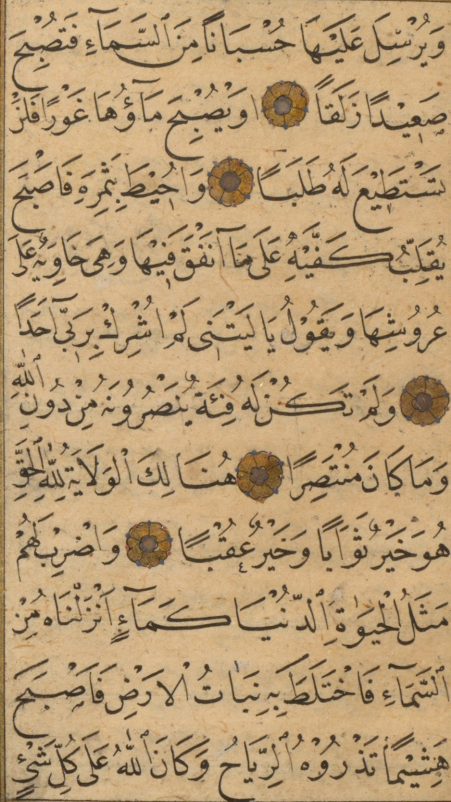 وَيُرْسِلَ عَلَيْهَا حُسْبَانًا مِنَ ٱلسَّمَآءِ فَتُصْبِحَ
صَعِيْدًا زَلَقًا اَوْيُصْبِحَ مَآؤُهَا غَوْرًا فَلَنْ
تَسْتَطِيْعَ لَهُ طَلَبًا وَاُحِيْطَ بِثَمَرِهِ فَاَصْبَحَ
يُقَلِّبُ كَفَّيْهِ عَلٰى مَآ اَنْفَقَ فِيْهَا وَهِىَ خَاوِيَةٌ عَلٰى
عُرُوْشِهَا وَيَقُوْلُ يَا لَيْتَنِى لَمْ اُشْرِكْ بِرَبِّىٓ اَحَدًا
وَلَمْ تَكُنْ لَهُ فِئَةٌ يَنْصُرُوْنَهُ مِنْ دُوْنِ ٱللّٰهِ
وَمَا كَانَ مُنْتَصِرًا هُنَا لِكَ الْوَلَايَةُ لِلّٰهِ الْحَقِّ
هُوَ خَيْرٌ ثَوَابًا وَخَيْرٌ عُقْبًا وَاضْرِبْ لَهُمْ
مَثَلَ الْحَيٰوةِ ٱلدُّنْيَا كَمَآءٍ اَنْزَلْنَاهُ مِنَ
السَّمَآءِ فَاخْتَلَطَ بِهِ نَبَاتُ الْاَرْضِ فَاَصْبَحَ
هَشِيْمًا تَذْرُوْهُ ٱلرِّيَاحُ وَكَانَ ٱللّٰهُ عَلٰى كُلِّ شَىْءٍ